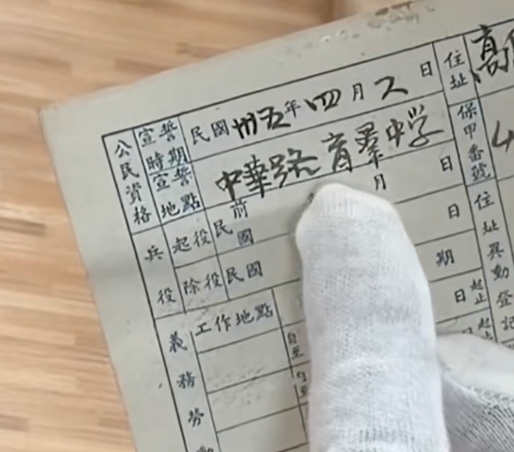 公民資格
宣誓時期
民國卅五年四月 日
住址
高
宣誓地點
中華路育羣中学
保甲番號
4
兵役
起役
民前國 月 日
除役
民國 日
住址異動登記
期
義務勞
工作地點
日起止
自至
起止